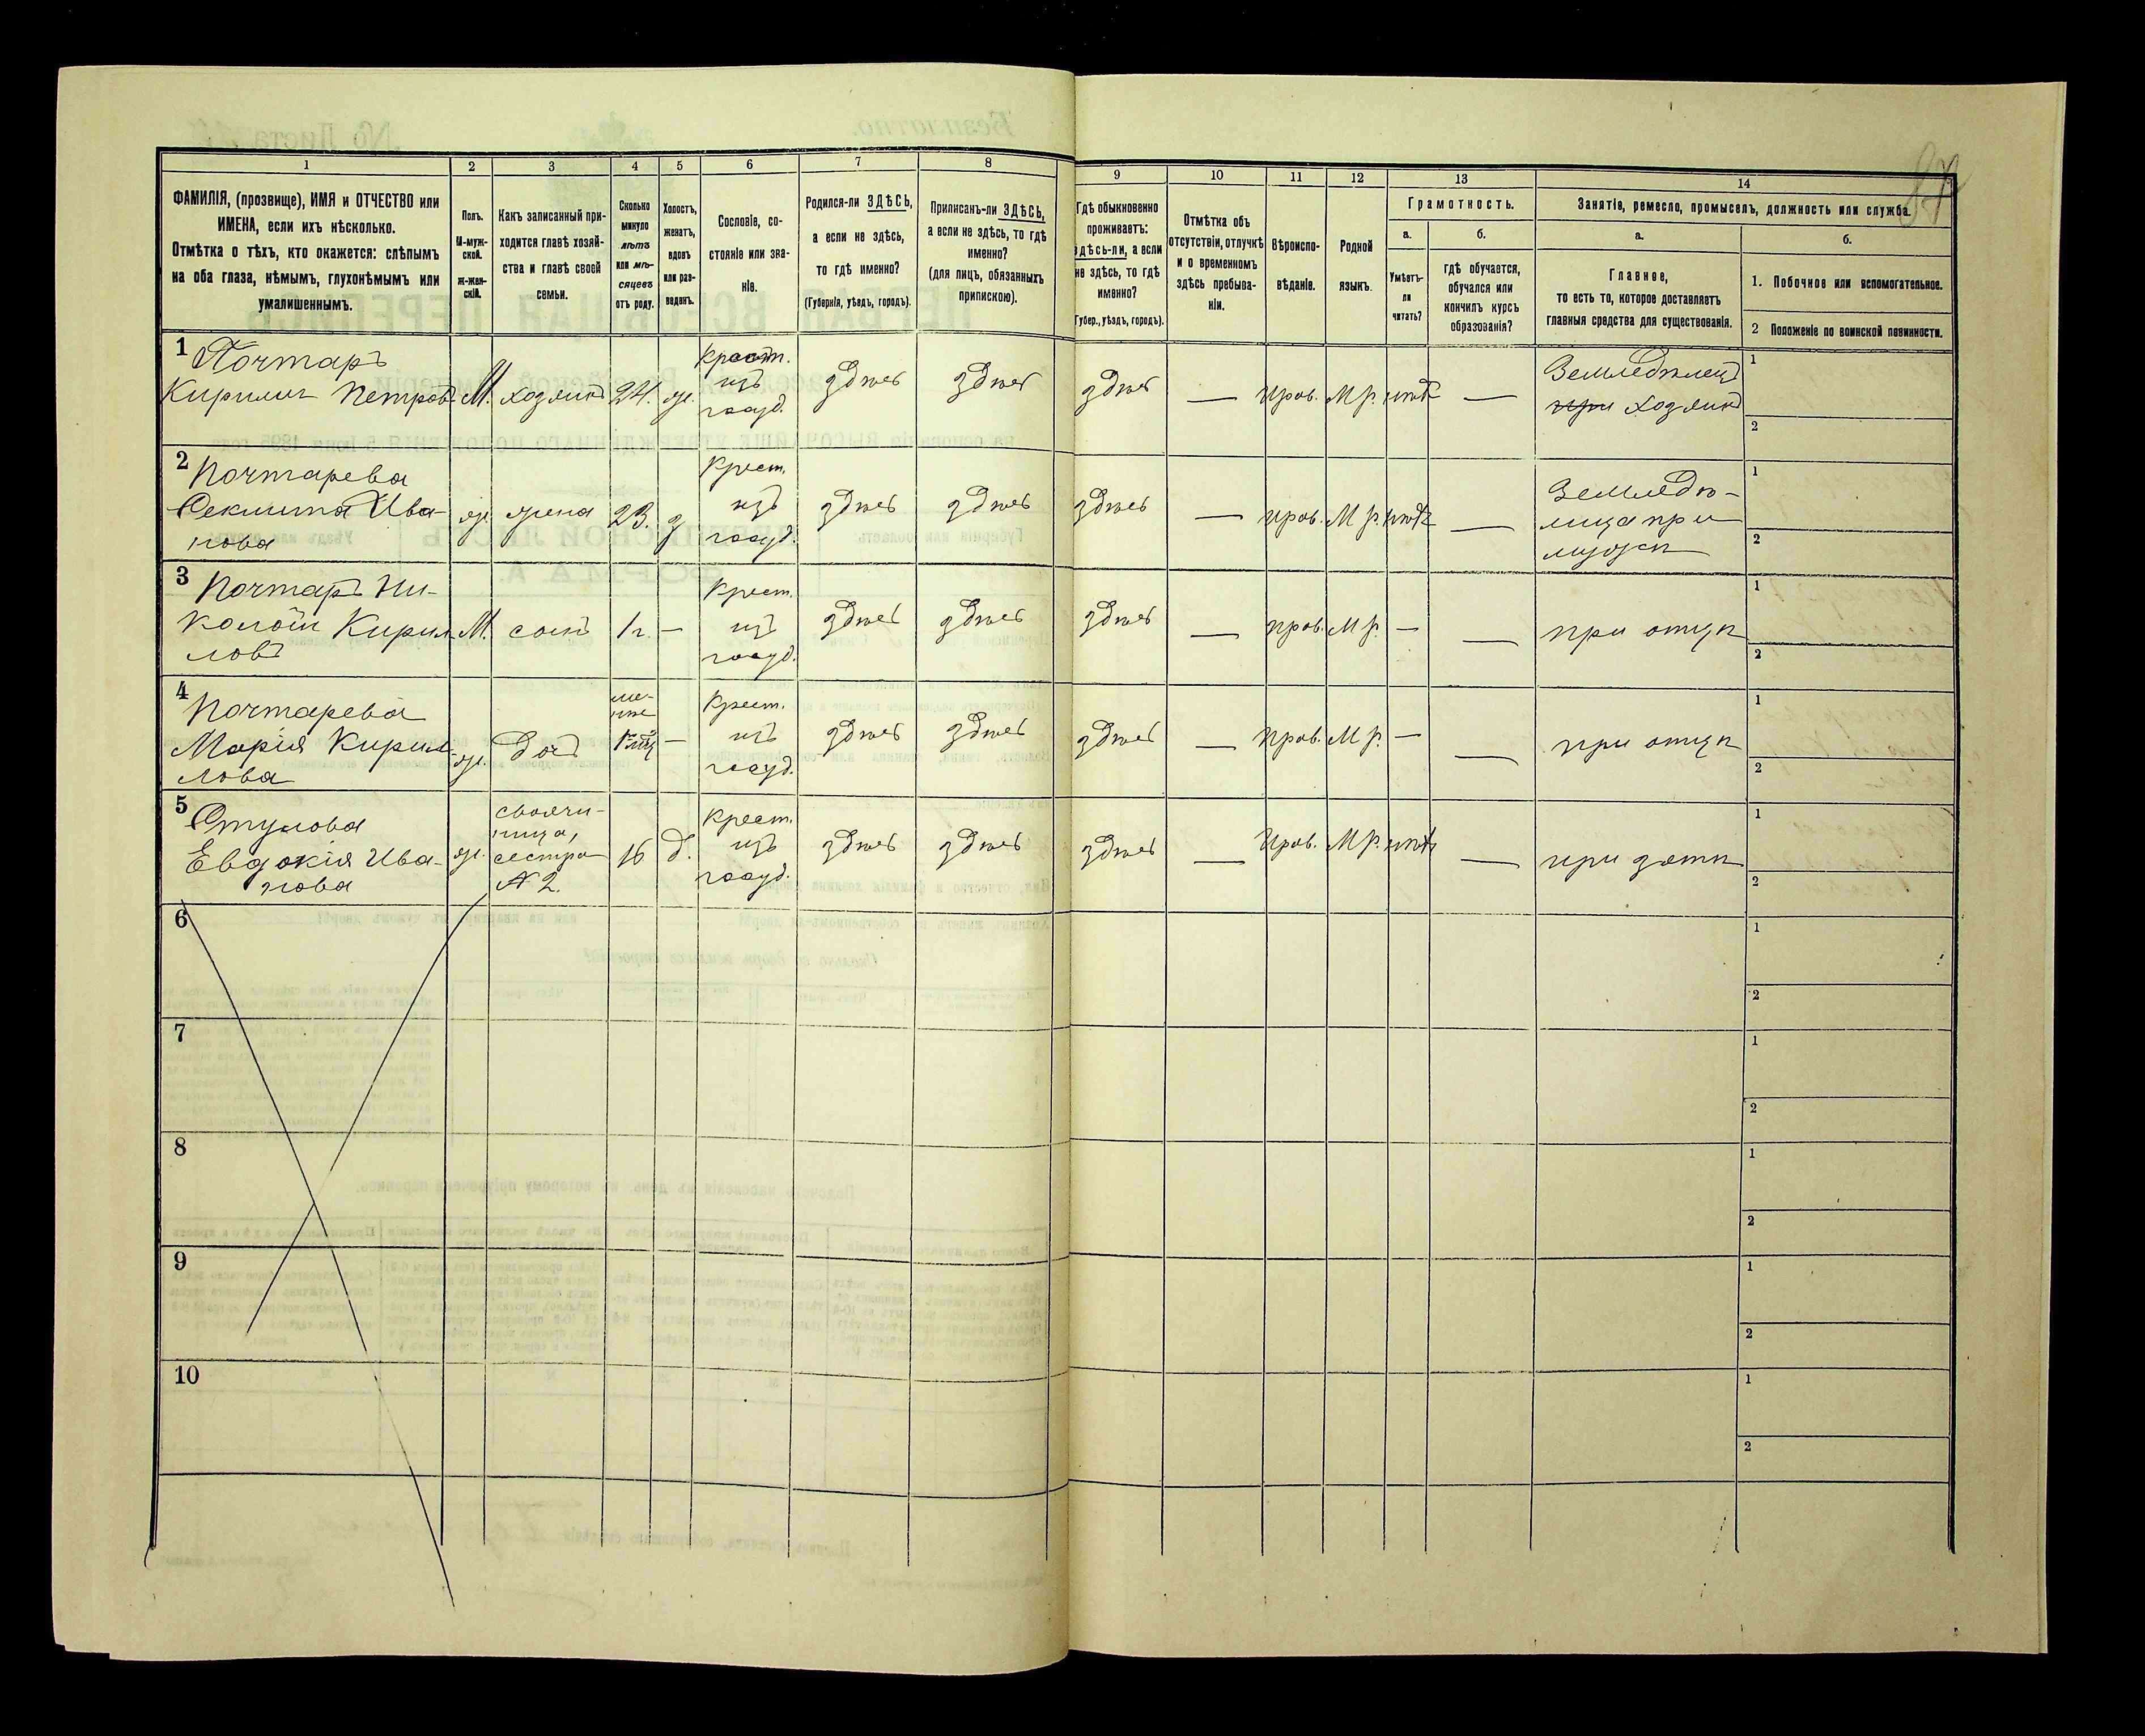 87
1
2
3
4
5
6
7
8
9
10
11
12
13
14
ФАМИЛІЯ, (прозвище), ИМЯ и ОТЧЕСТВО или
ИМЕНА, если ихъ нѣсколько.
Отмѣтка о тѣхъ, кто окажется: слѣпымъ
на оба глаза, нѣмымъ, глухонѣмымъ или
умалишеннымъ.
Полъ.
М-муж-
ской.
ж-жен-
скій.
Какъ записанный при-
ходится главѣ хозяй-
ства и главѣ своей
семьи.
Сколько
минуло
лѣтъ
или мѣ-
сяцевъ
отъ роду.
Холостъ,
женатъ,
вдовъ
или раз-
веденъ.
Сословіе, со-
стояніе или зва-
ніе.
Родился-ли ЗДѢСЬ,
а если не здѣсь,
то гдѣ именно?
(Губернія, уѣздъ, городъ).
Приписанъ-ли ЗДѢСЬ,
а если не здѣсь, то гдѣ
именно?
(для лицъ, обязанныхъ
припискою).
Гдѣ обыкновенно
проживаетъ:
здѣсь-ли, а если
не здѣсь, то гдѣ
именно?
(Губер., уѣздъ, городъ).
Отмѣтка объ
отсутствіи, отлучкѣ
и о временномъ
здѣсь пребыва-
ніи.
Вѣроиспо-
вѣданіе.
Родной
языкъ.
Грамотность.
а.
Умѣетъ-
ли
читать?
б.
гдѣ обучается,
обучался или
кончилъ курсъ
образованія?
Занятіе, ремесло, промыселъ, должность или служба.
а.
Главное,
то есть то, которое доставляетъ
главныя средства для существованія.
б.
1. Побочное или вспомогательное.
2 Положеніе по воинской повинности.
1 Почтаръ
Кирилъ Петровъ М. хозяинъ 24. ж. Крест. изъ госуд. здѣсь здѣсь здѣсь — Прав. М р. нѣтъ — Земледѣлецъ
хозяинъ 1
2
2 Почтарева
Феклина Ива-
нова ж. жена 23. з Крест. изъ госуд. здѣсь здѣсь здѣсь — прав. М р. нѣтъ — Земледѣ-
лица при
мужѣ 1
2
3 Почтаръ Ни-
колай Кирил-
ловъ М. сынъ 1 г. — Крест. изъ госуд. здѣсь здѣсь здѣсь — прав. М р. — — при отцѣ 1
2
4 Почтарева
Марія Кирил-
лова ж. дочь ме-
нѣе — Крест. изъ госуд. здѣсь здѣсь здѣсь — прав. М р. — — при отцѣ 1
2
5 Стулова
Евдокія Ива-
нова ж. своячи-
ница,
сестра
№ 2. 16 д. Крест. изъ госуд. здѣсь здѣсь здѣсь — Прав. М р. нѣтъ — при зятѣ 1
2
6 1
2
7 1
2
8 1
2
9 1
2
10 1
2